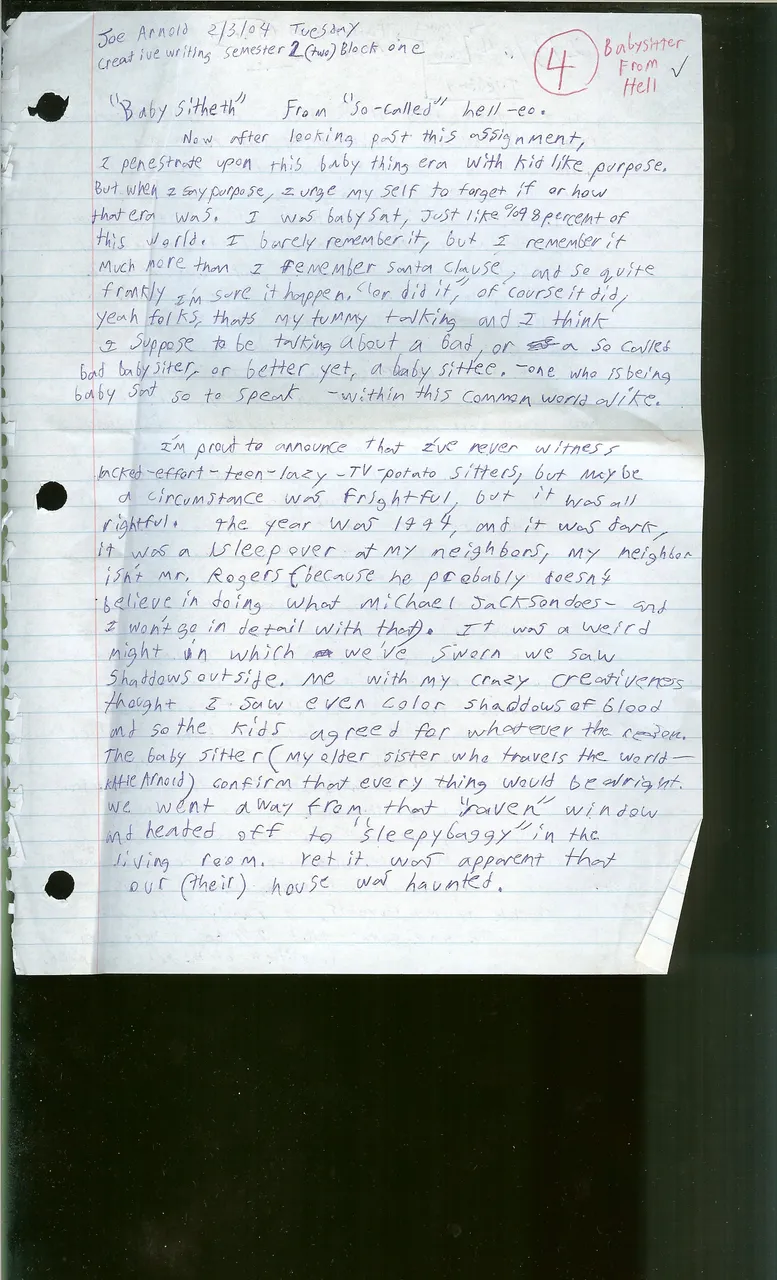 Joe Arnold 2/3/04 Tuesday
Creative writing semester 2 (two) Block one
4
Babysitter
From
Hell ✓
"Baby Sitheth" From "so-called" hell-eo.
Now after looking past this assignment,
I penestrate upon this baby thing era with kid like purpose.
But when I say purpose, I urge my self to forget if or how
that era was. I was baby sat, Just like %98 percent of
this world. I barely remember it, but I remember it
much more than I remember santa clause, and so quite
frankly I'm sure it happen. "or did it", of course it did,
yeah folks, thats my tummy talking and I think
I suppose to be talking about a bad, or a so called
bad baby siter, or better yet, a baby sittee. -one who is being
baby sat so to speak -within this common world alike.
I'm proud to announce that I've never witness
lacked-effort-teen-lazy-TV-potato sitters, but maybe
a circumstance was frightful, but it was all
rightful. The year was 1994, and it was dark,
it was a sleepover at my neighbors, my neighbor
isn't mr. Rogers (because he probably doesn't
believe in doing what Michael Jackson does- and
I won't go in detail with that). It was a weird
night in which we've sworn we saw
shaddows outside. Me with my crazy creativeness
thought I saw even color shaddows of blood
and so the kids agreed for whatever the reason.
The baby sitter (my older sister who travels the world-
Katie Arnold) confirm that every thing would be alright.
we went away from that "raven" window
and headed off to "sleepybaggy" in the
living room. Yet it was apparent that
our (their) house was haunted.